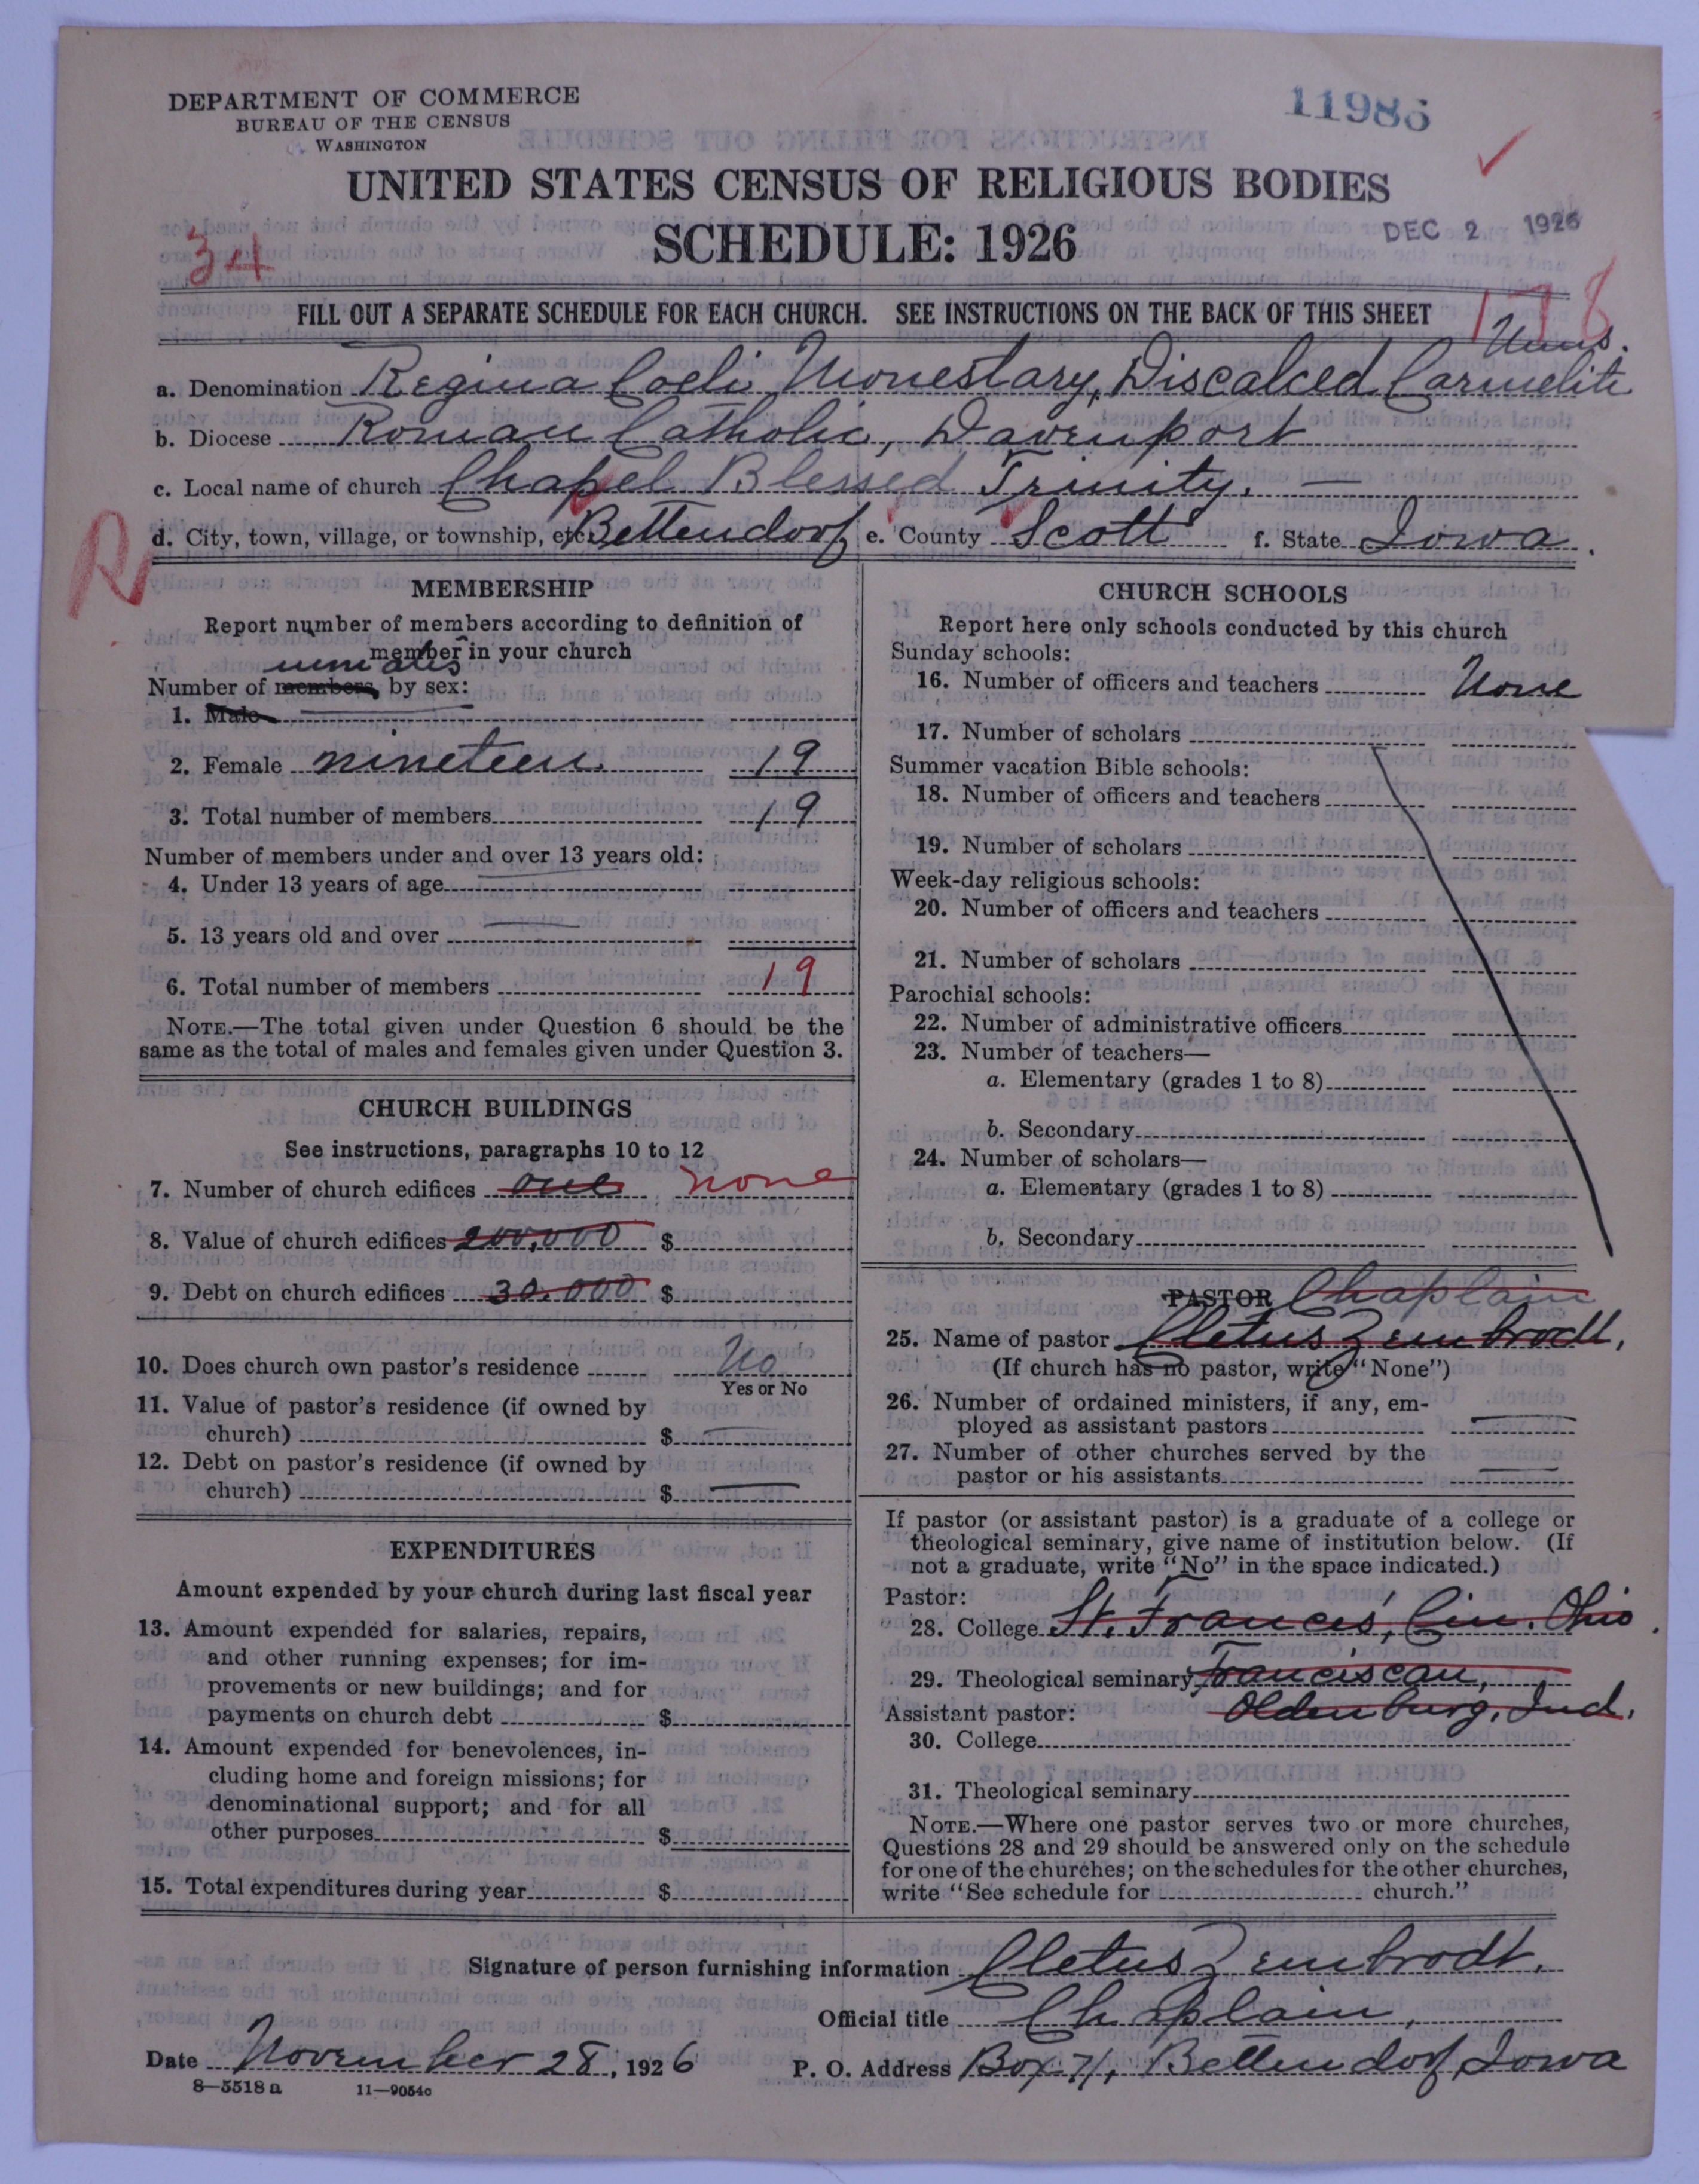 DEPARTMENT OF COMMERCE
BUREAU OF THE CENSUS
WASHINGTON
11986
UNITED STATES CENSUS OF RELIGIOUS BODIES
SCHEDULE: 1926
DEC 2 1926
34
178
FILL OUT A SEPARATE SCHEDULE FOR EACH CHURCH. SEE INSTRUCTIONS ON THE BACK OF THIS SHEET
Nuns.
a. Denomination Regina Coeli Monestary, Discalced Carmelite
b. Diocese Roman Catholic, Davenport
c. Local name of church Chapel Blessed Trinity.
R
d. City, town, village, or township, etc. Bettendorf e. County Scott f. State Iowa.
MEMBERSHIP
Report number of members according to definition of
member in your church
inmates
Number of members by sex:
1. Male
2. Female nineteen. 19
3. Total number of members 19
Number of members under and over 13 years old:
4. Under 13 years of age
5. 13 years old and over
6. Total number of members 19
NOTE.—The total given under Question 6 should be the
same as the total of males and females given under Question 3.
CHURCH BUILDINGS
See instructions, paragraphs 10 to 12
7. Number of church edifices one none
8. Value of church edifices 200,000 $
9. Debt on church edifices 30.000 $
10. Does church own pastor's residence No
Yes or No
11. Value of pastor's residence (if owned by
church) $
12. Debt on pastor's residence (if owned by
church) $
EXPENDITURES
Amount expended by your church during last fiscal year
13. Amount expended for salaries, repairs,
and other running expenses; for im-
provements or new buildings; and for
payments on church debt $
14. Amount expended for benevolences, in-
cluding home and foreign missions; for
denominational support; and for all
other purposes $
15. Total expenditures during year $
CHURCH SCHOOLS
Report here only schools conducted by this church
Sunday schools:
16. Number of officers and teachers None
17. Number of scholars
Summer vacation Bible schools:
18. Number of officers and teachers
19. Number of scholars
Week-day religious schools:
20. Number of officers and teachers
21. Number of scholars
Parochial schools:
22. Number of administrative officers
23. Number of teachers—
a. Elementary (grades 1 to 8)
b. Secondary
24. Number of scholars—
a. Elementary (grades 1 to 8)
b. Secondary
PASTOR Chaplain
25. Name of pastor Cletus Zembrodt,
(If church has no pastor, write "None")
26. Number of ordained ministers, if any, em-
ployed as assistant pastors
27. Number of other churches served by the
pastor or his assistants
If pastor (or assistant pastor) is a graduate of a college or
theological seminary, give name of institution below. (If
not a graduate, write "No" in the space indicated.)
Pastor:
28. College St. Francis', Cin. Ohio.
29. Theological seminary Franciscan,
Assistant pastor: Oldenburg, Ind.
30. College
31. Theological seminary
NOTE.—Where one pastor serves two or more churches,
Questions 28 and 29 should be answered only on the schedule
for one of the churches; on the schedules for the other churches,
write "See schedule for church."
Signature of person furnishing information Cletus Zembrodt.
Official title Chaplain,
Date November 28, 1926 P. O. Address Box 71, Bettendorf Iowa
8—5518 a 11—9054c